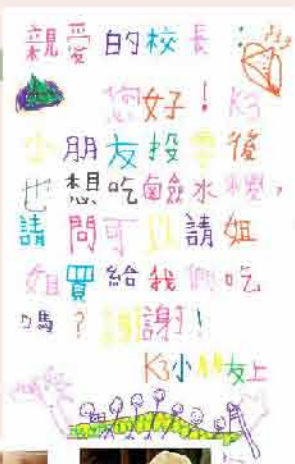 親愛的校長:
您好! K3
小朋友投票後
也想吃鹼水糉,
請問可以請姐
姐買給我們吃
嗎?謝謝!
K3小朋友上